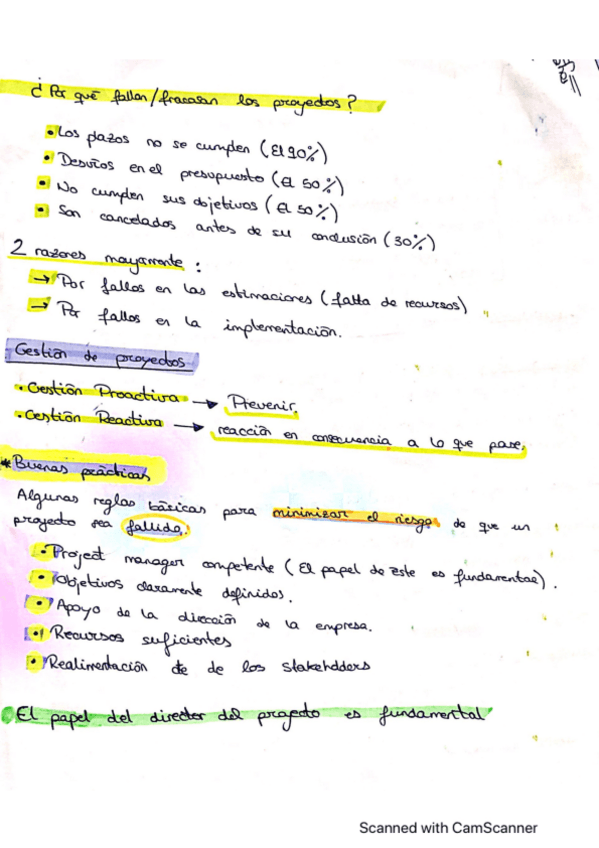 ¿Por qué fallan/fracasan los proyectos?
• Los plazos no se cumplen (El 90%)
• Desvíos en el presupuesto (El 50%)
• No cumplen sus objetivos (El 50%)
• Son cancelados antes de su conclusión (30%)
2 razones mayormente:
→ Por fallos en las estimaciones (falta de recursos)
→ Por fallos en la implementación.
Gestión de proyectos
• Gestión Proactiva → Prevenir.
• Gestión Reactiva → reacción en consecuencia a lo que pase.
* Buenas prácticas
Algunas reglas básicas para minimizar el riesgo de que un
proyecto sea fallido.
• Project manager competente (El papel de este es fundamental).
• Objetivos claramente definidos.
• Apoyo de la dirección de la empresa.
• Recursos suficientes
• Realimentación de de los stakeholders
• El papel del director del proyecto es fundamental
Scanned with CamScanner